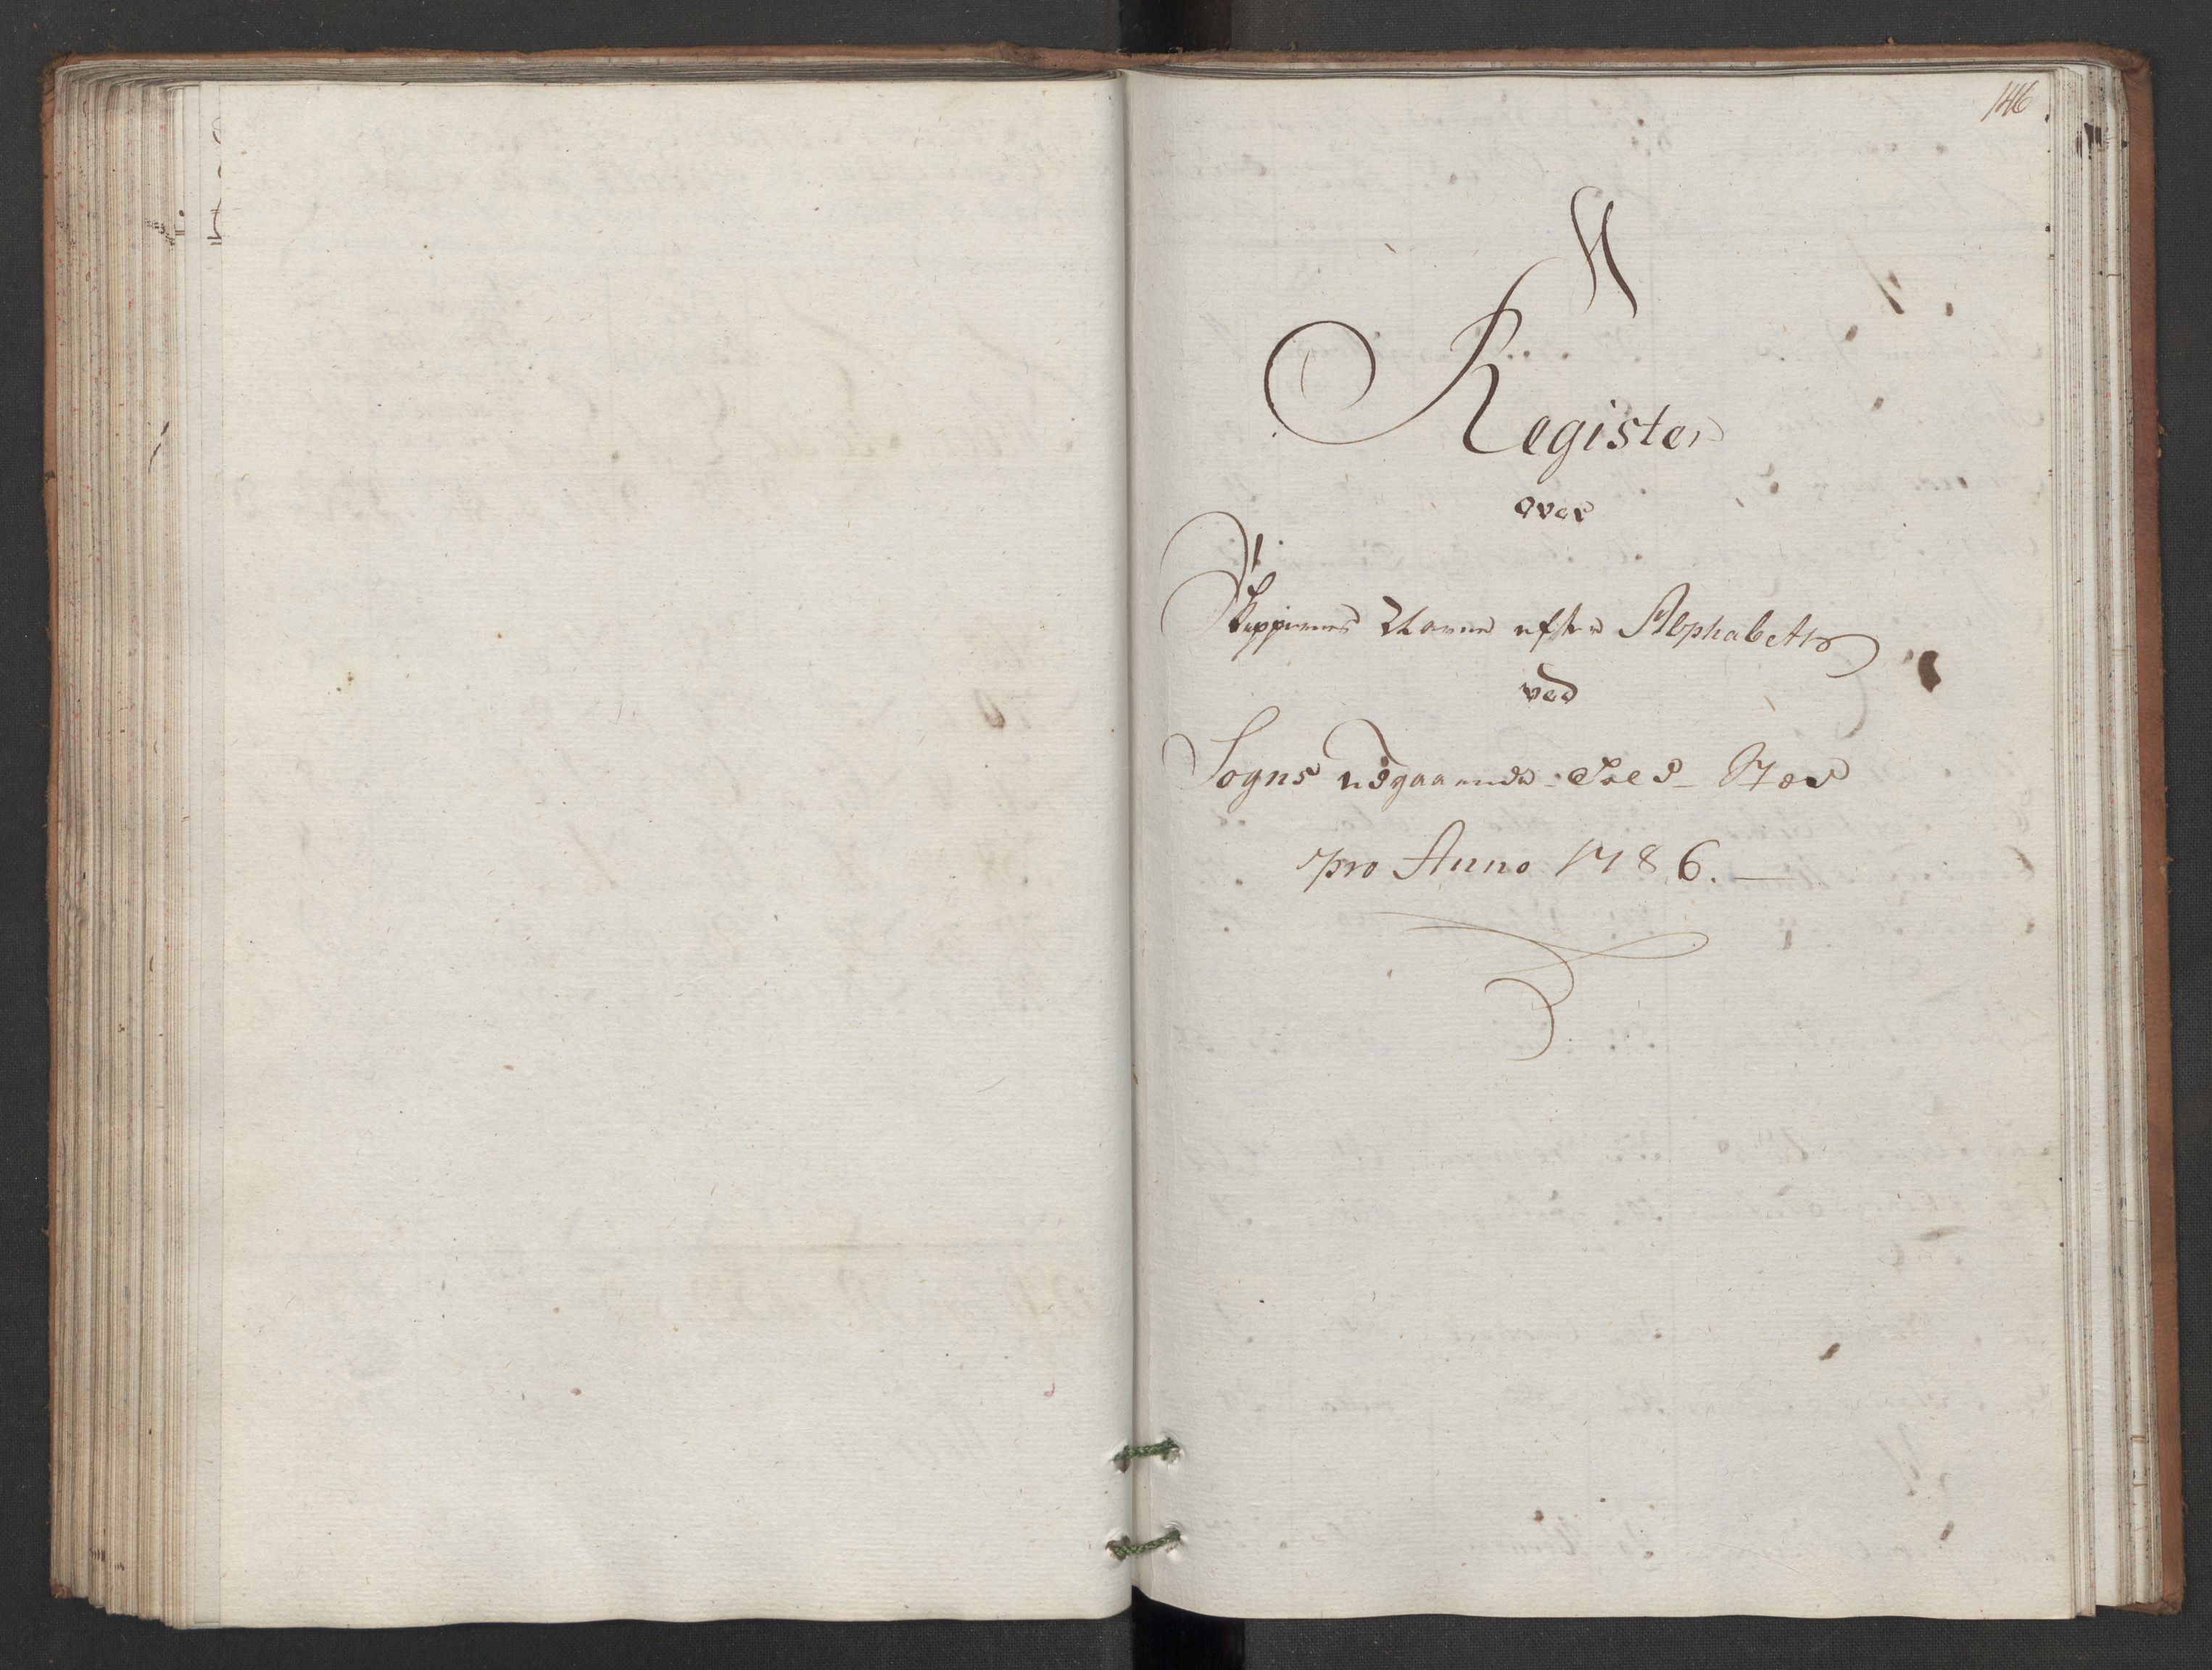 146
Register
over
Skippernes Navne efter Alphabeth
ved
Sogns udgaaende Told-Stæd
pro Anno 1786.